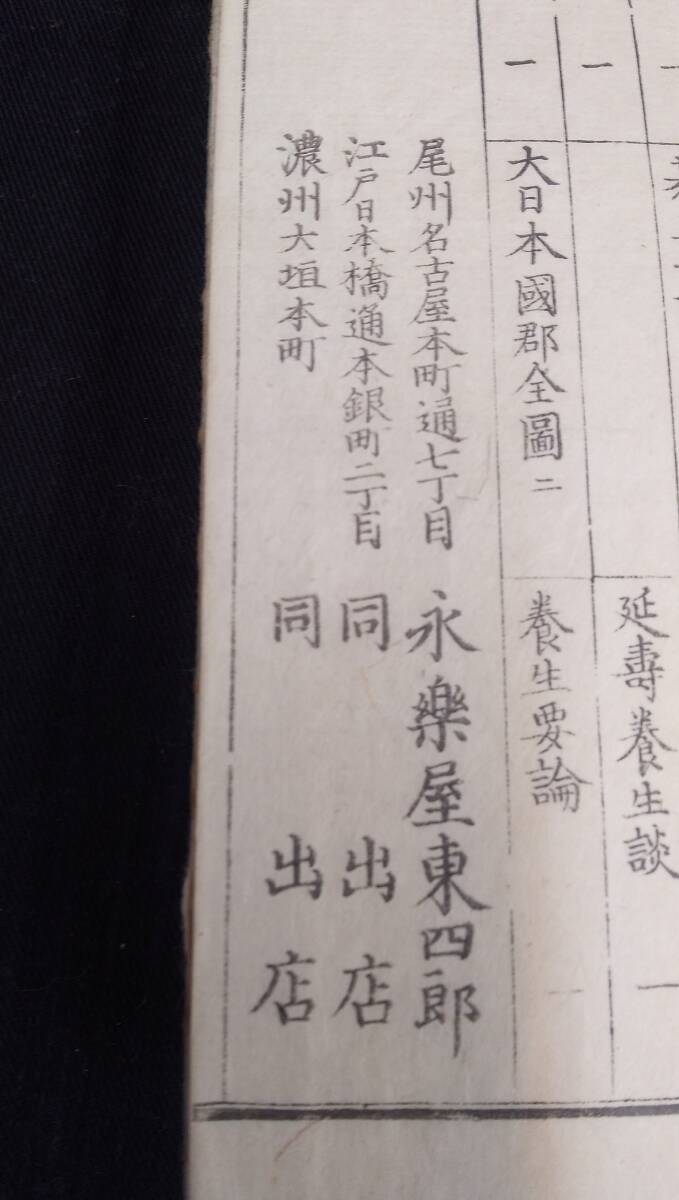 一
延壽養生談 一
一
大日本國郡全圖 二
養生要論 一
尾州名古屋本町通七丁目 永樂屋東四郎
江戸日本橋通本銀町二丁目 同 出店
濃州大垣本町 同 出店